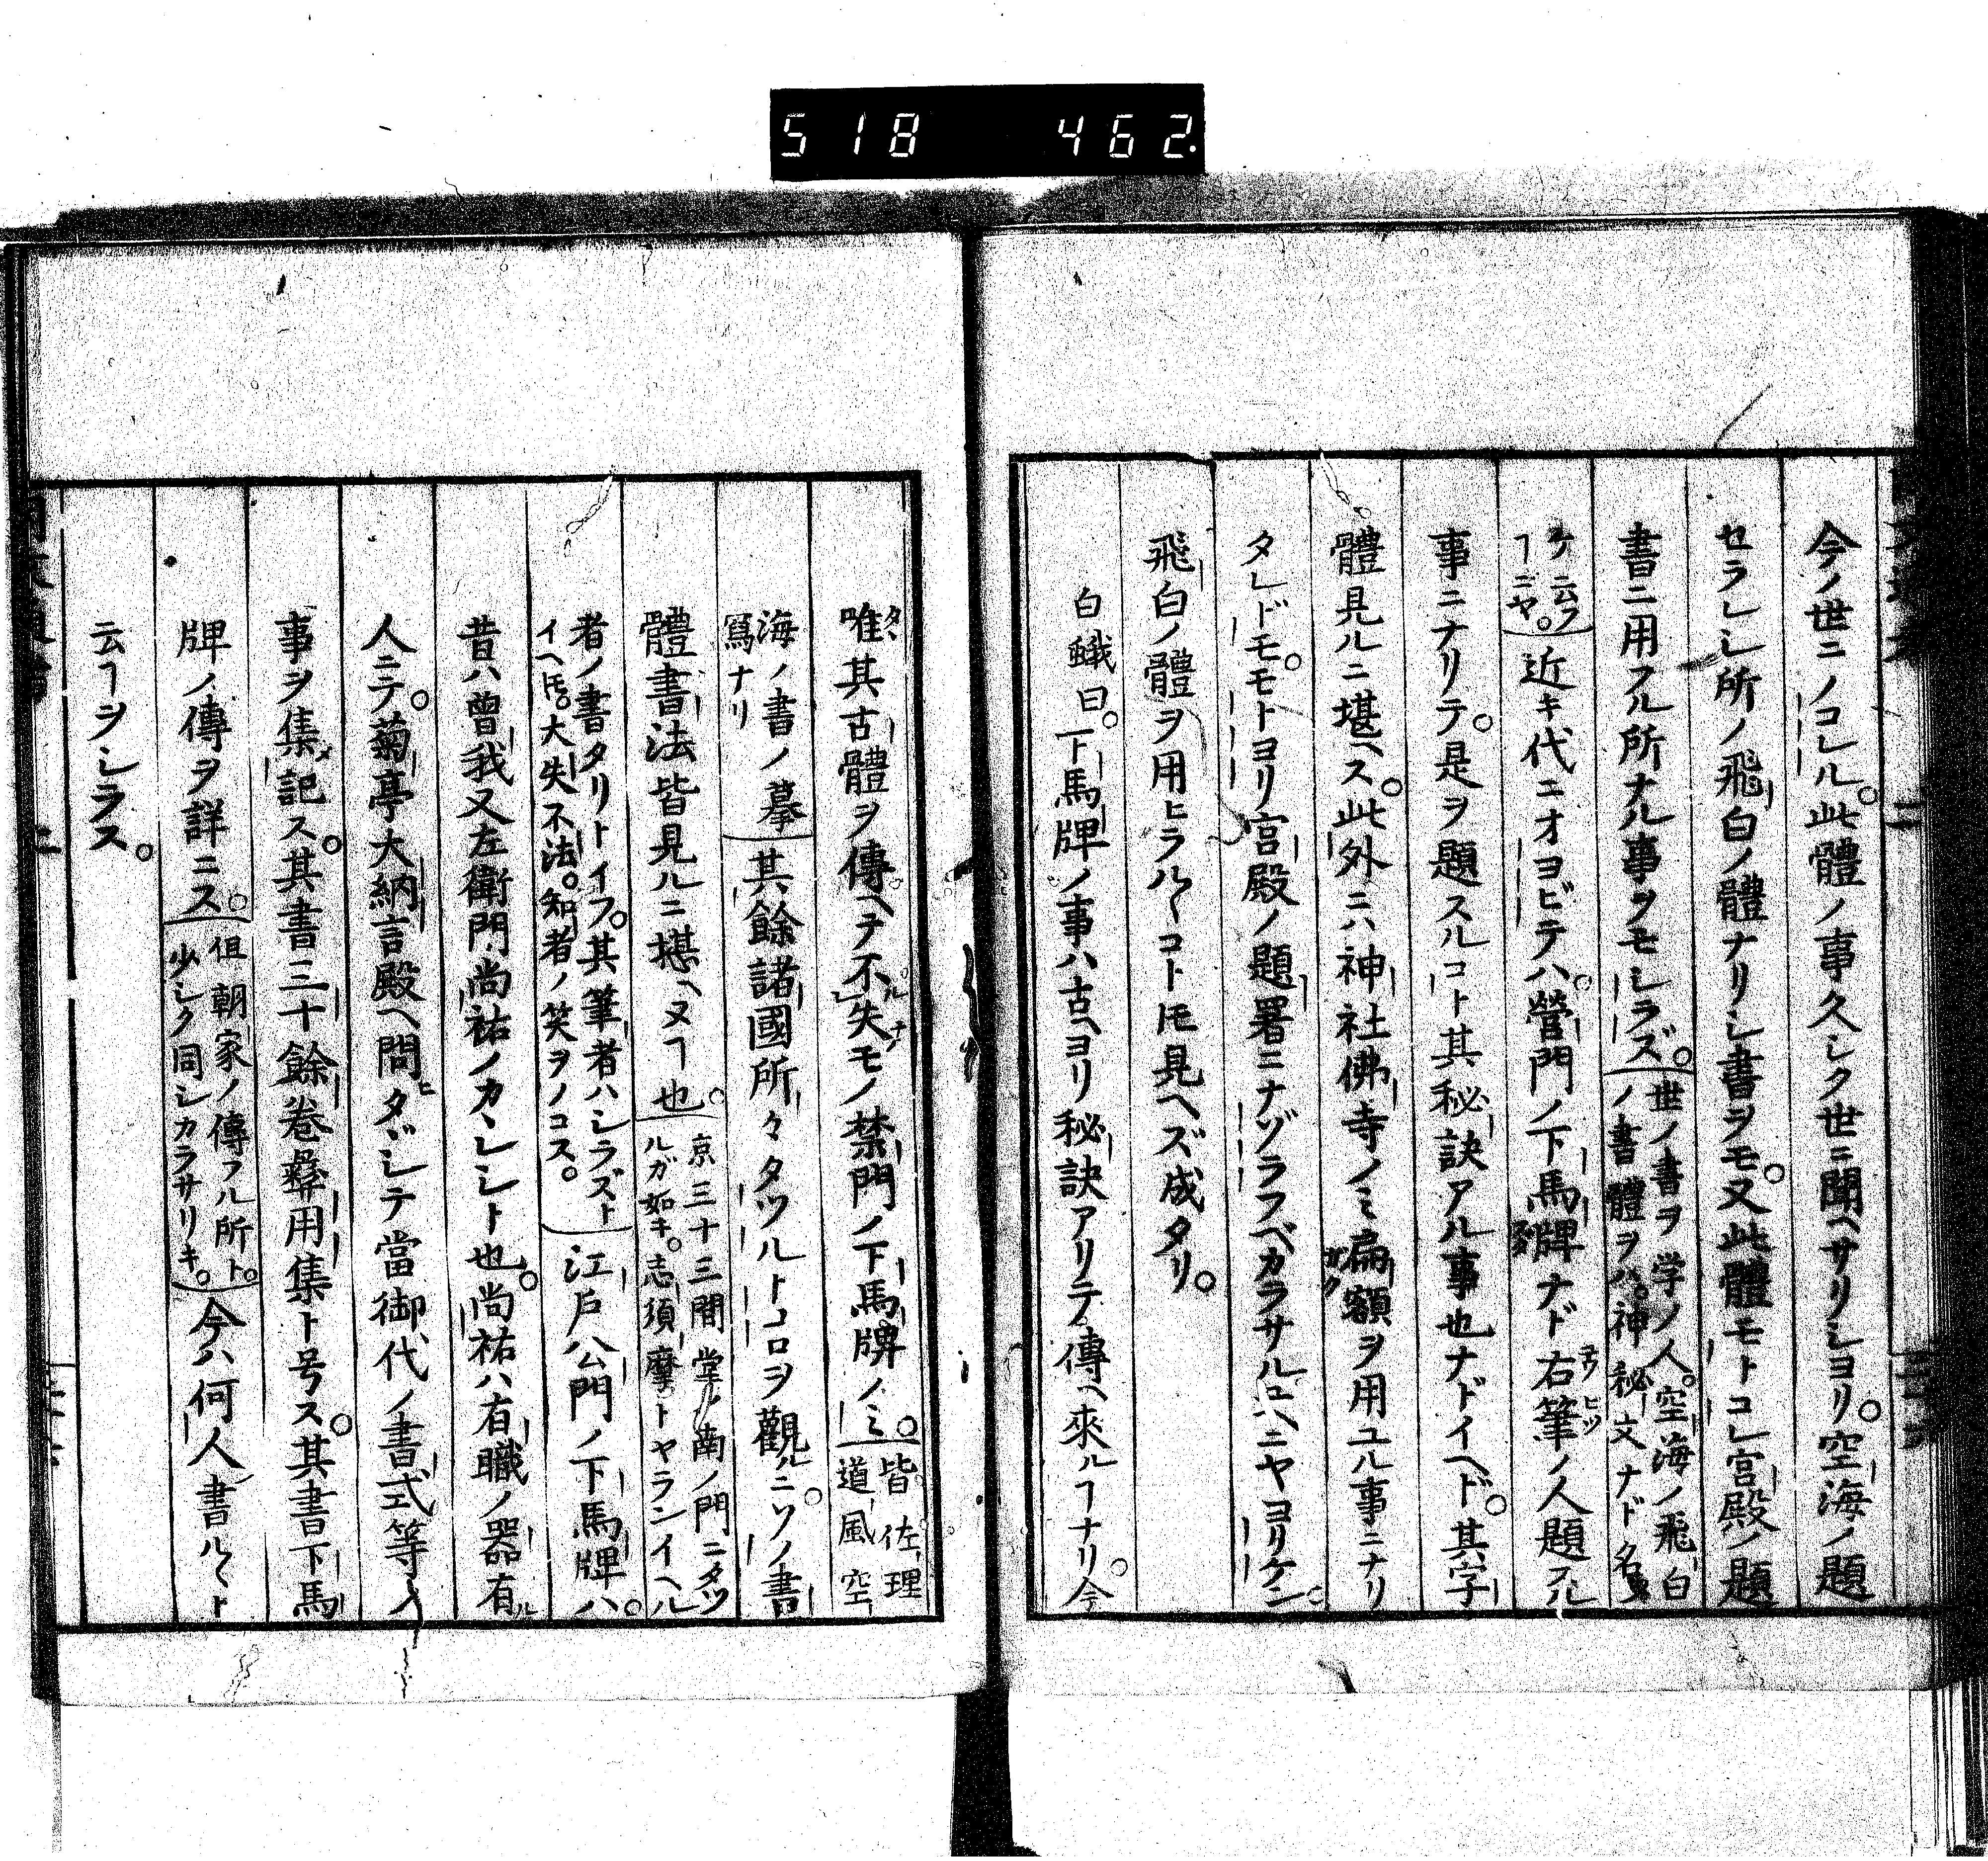 518 462
今ノ世ニノコレル。此體ノ事久シク世ニ聞ヘサリシヨリ。空海ノ題
セラレシ所ノ飛白ノ體ナリシ書ヲモ。又此體モトコレ宮殿ノ題
書ニ用フル所ナル事ヲモシラズ。世ノ書ヲ学ノ人。空海ノ飛白
ノ書體ヲハ。神秘文ナド名
ケ云フ
ヿニヤ。近キ代ニオヨビテハ。營門ノ下馬牌ナド右筆ノ人題スル
事ニナリテ。是ヲ題スルコト其秘訣アル事也ナドイヘド。其字
體見ルニ堪ヘス。此外ニハ神社佛寺ノミ扁額ヲ用ユル事ニナリ
タレドモ。モトヨリ宮殿ノ題署ニナゾラフベカラサルコハニヤヨリケン。
飛白ノ體ヲ用ヒラルヽコトモ見ヘズ成タリ。
白蛾曰。下馬牌ノ事ハ古ヘヨリ秘訣アリテ傳ヘ來ルヿナリ。今
唯其古體ヲ傳ヘテ不失モノ禁門ノ下馬牌ノミ。皆佐理
道風空
海ノ書ノ摹
寫ナリ 其餘諸國所々タツルトコロヲ觀ルニソノ書
體書法皆見ルニ堪ヘヌヿ也。京三十三間堂ノ南ノ門ニタツ
ルガ如キ。志須摩トヤランイヘル
者ノ書タリトイフ。其筆者ハシラズト
イヘ𪜈。大失不法。知者ノ笑ヲノコス。江戸公門ノ下馬牌ハ。
昔ハ曽我又左衛門尚祐ノカヽレシト也。尚祐ハ有職ノ器有
人ニテ。菊亭大納言殿ヘ問タヾシテ當御代ノ書式等ノ
事ヲ集記ス。其書三十餘卷彝用集ト号ス。其書下馬
牌ノ傳ヲ詳ニス。但朝家ノ傳フル所ト。
少シク同シカラサリキ。今ハ何人書ルヽト
云ヿヲシラス。